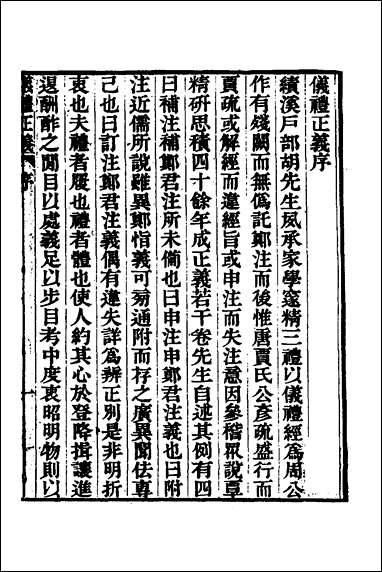 儀禮正義序
績溪戶部胡先生夙承家學邃精三禮以儀禮經爲周公
作有殘闕而無僞託鄭注而後惟唐賈氏公彥疏盛行而
賈疏或解經而違經旨或申注而失注意因參稽眾說覃
精硏思積四十餘年成正義若干卷先生自述其例有四
曰補注補鄭君注所未備也曰申注申鄭君注義也曰附
注近儒所說雖異鄭恉義可旁通附而存之廣異聞佉專
己也曰訂注鄭君注義偶有違失詳爲辨正別是非明折
衷也夫禮者履也禮者體也使人約其心於登降揖讓進
退酬酢之閒目以處義足以步目考中度衷昭明物則以
儀禮正義 序